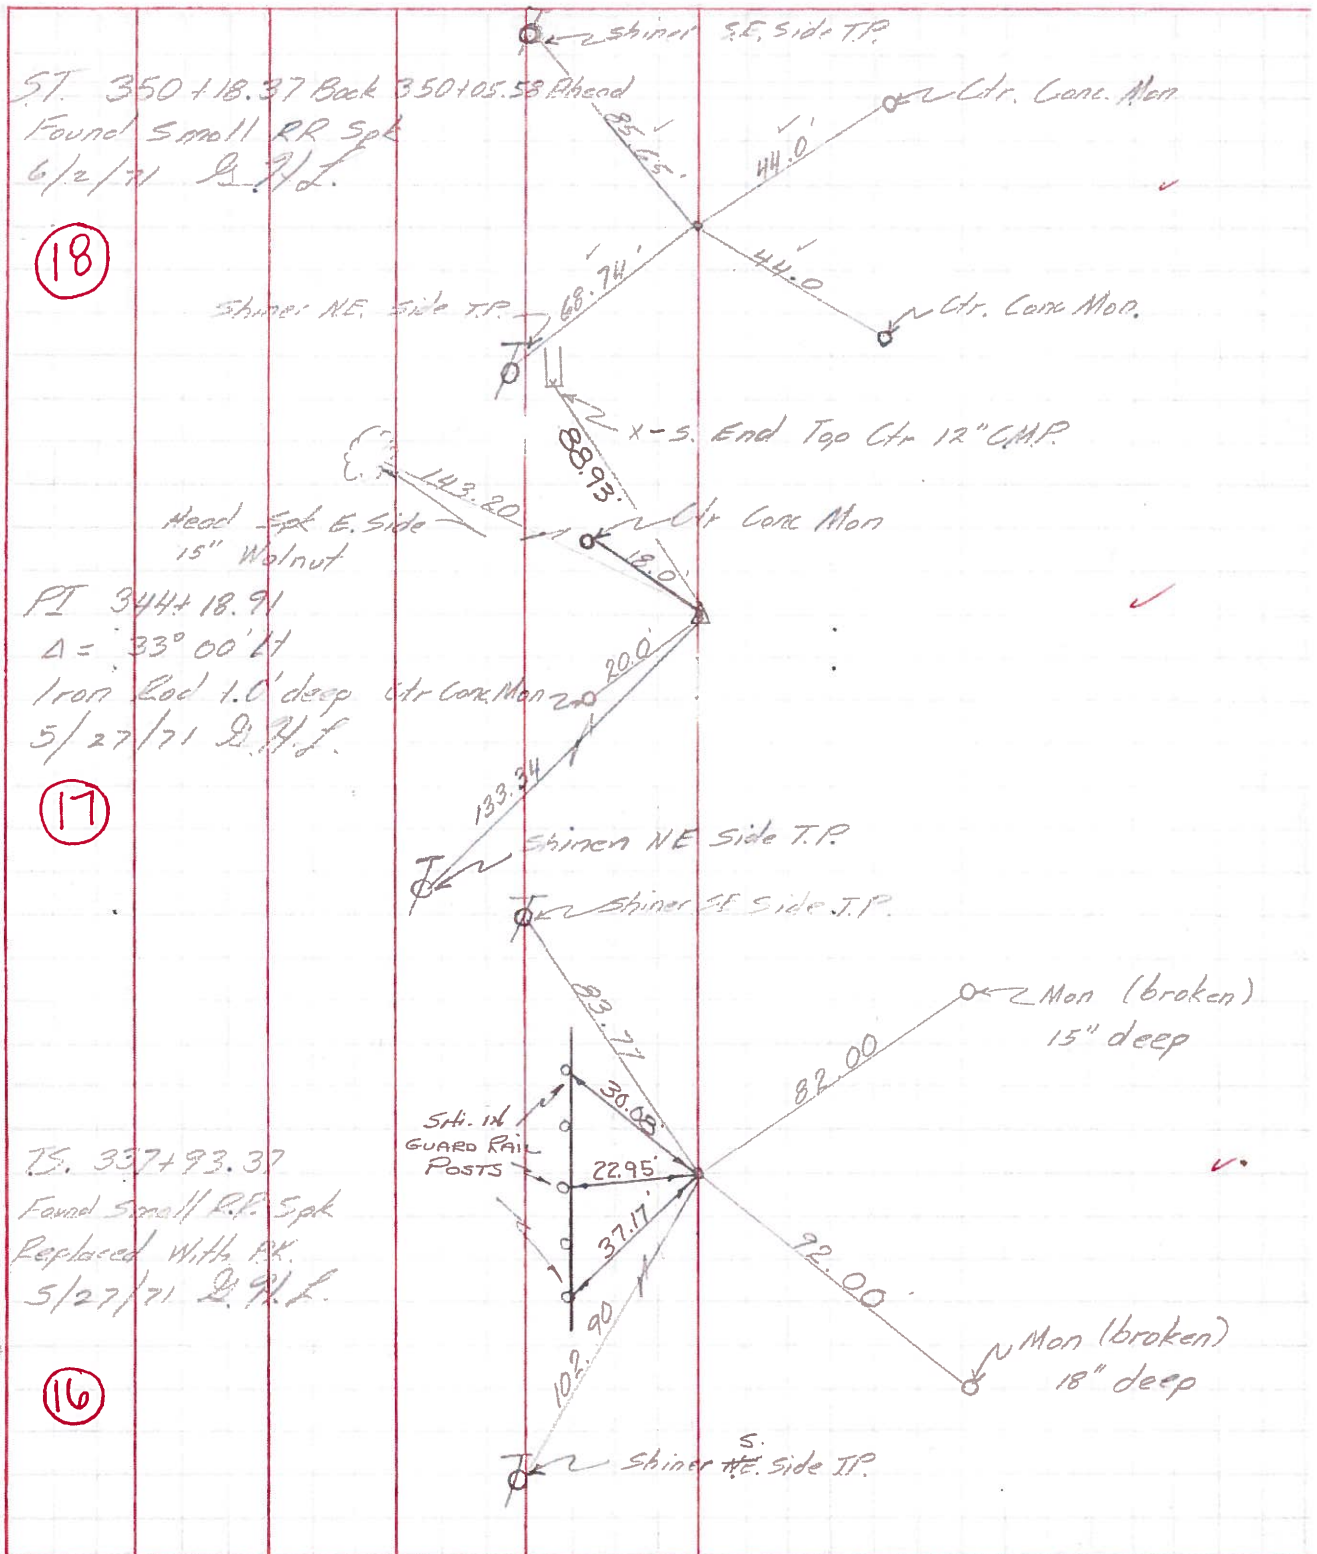 Shiner S.E. Side T.P.
ST. 350+18.37 Back 350+05.53 Ahead
Found Small RR Spk
6/2/71 G.H.L.
18
85.65'
44.0'
Ctr. Conc. Mon
68.74'
44.0
Shiner N.E. Side T.P.
Ctr. Conc Mon.
x-S. End Top Ctr 12" C.M.P.
88.93'
143.20
Head Spk E. Side
15" Walnut
Ctr Conc Mon
18.0'
PI 344+18.91
Δ = 33° 00' Lt
Iron Rod 1.0' deep
5/27/71 G.H.L.
17
20.0'
Ctr Conc. Mon
133.34
Shiner NE Side T.P.
Shiner SE Side T.P.
83.77
Mon (broken)
15" deep
82.00
30.08'
SHI. IN
GUARD RAIL
POSTS
22.95'
37.17'
TS. 337+93.37
Found Small R.R. Spk
Replaced With P.K.
5/27/71 G.H.L.
16
92.00
102.90
Mon (broken)
18" deep
S.
Shiner N.E. Side T.P.